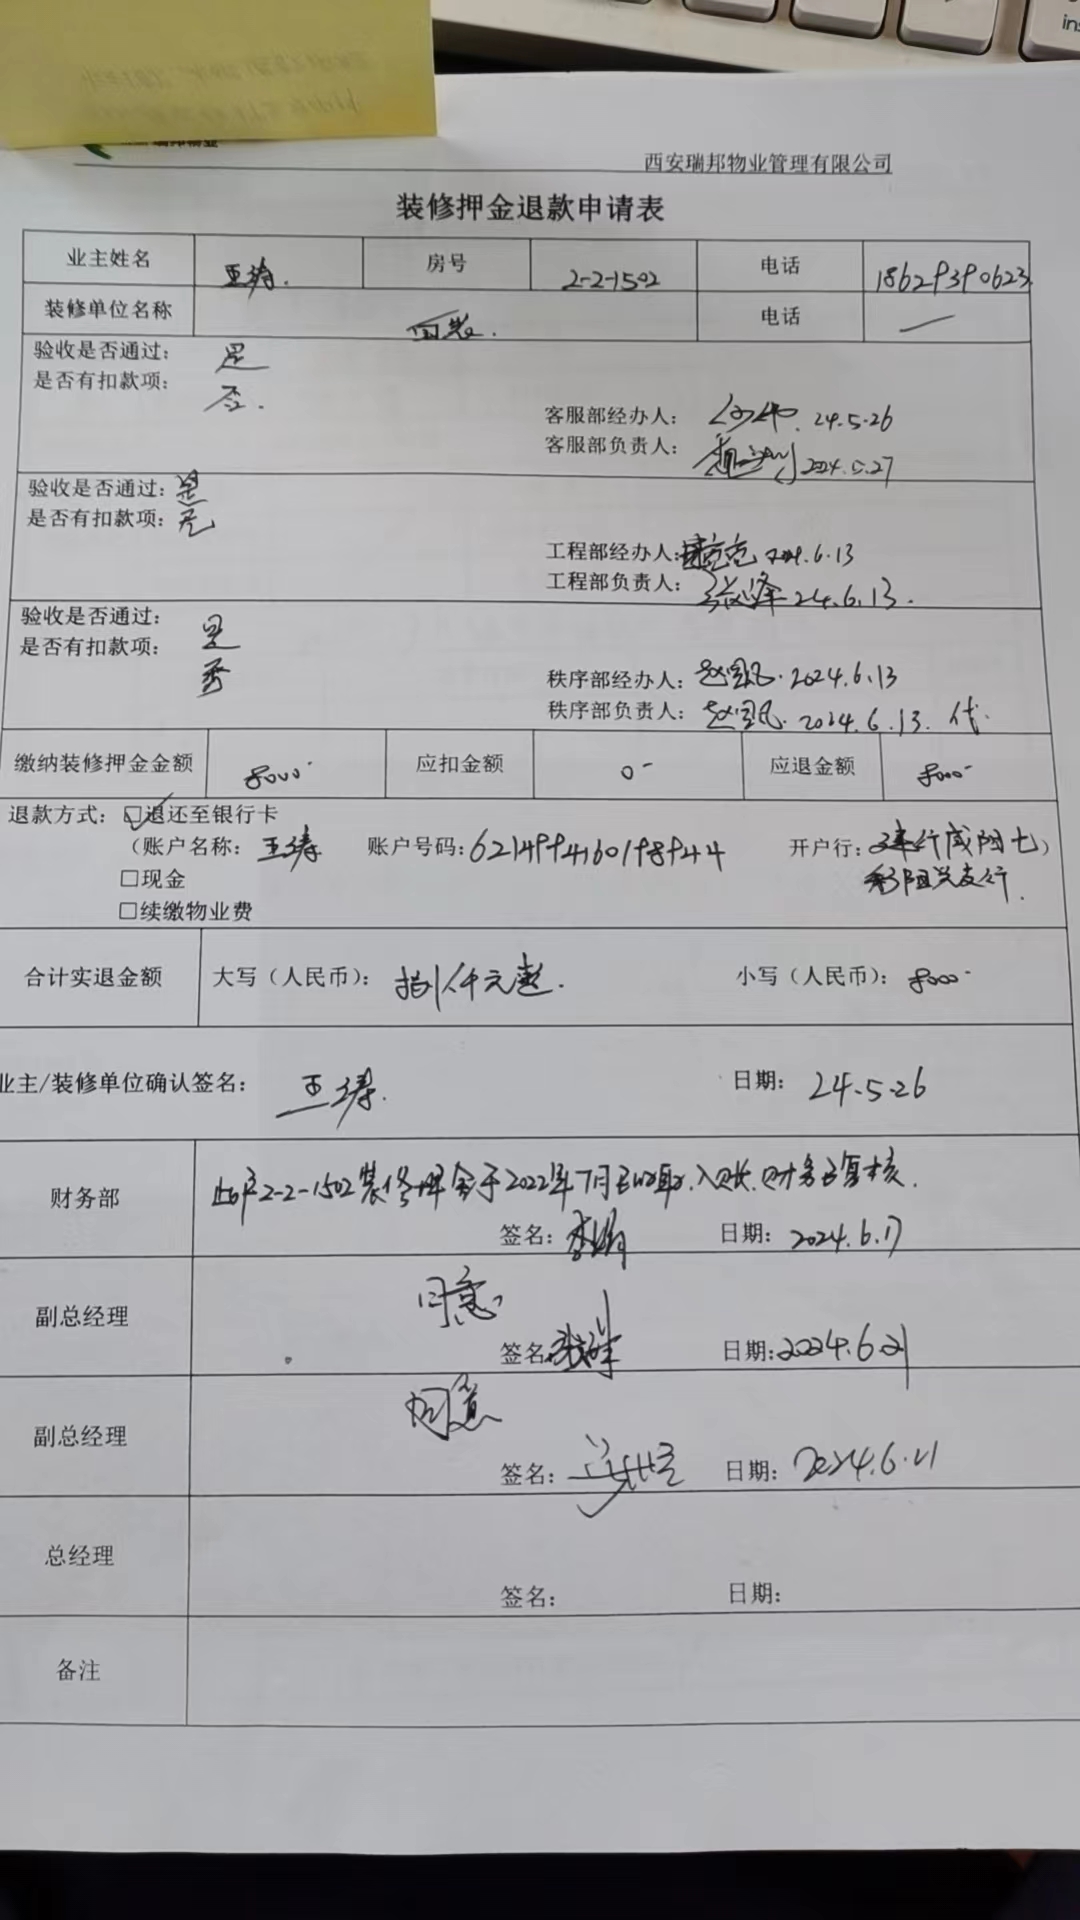 瑞邦物业
西安瑞邦物业管理有限公司
装修押金退款申请表
业主姓名 王涛. 房号 2-2-1502 电话 18629390623
装修单位名称 自装. 电话 —
验收是否通过: 是
是否有扣款项: 否.
客服部经办人: 24.5.26
客服部负责人: 2024.5.27
验收是否通过: 是
是否有扣款项: 无
工程部经办人: 2024.6.13
工程部负责人: 张峰 24.6.13.
验收是否通过: 是
是否有扣款项: 否
秩序部经办人: 2024.6.13
秩序部负责人: 2024.6.13. 代.
缴纳装修押金金额 8000- 应扣金额 0- 应退金额 8000-
退款方式: □退还至银行卡
(账户名称: 王涛 账户号码: 6214994160198944 开户行: 建行咸阳七)
彩阳光支行.
□现金
□续缴物业费
合计实退金额 大写(人民币): 捌仟元整. 小写(人民币): 8000-
业主/装修单位确认签名: 王涛. 日期: 24.5.26
财务部 此户2-2-1502装修押金于2022年7月已收取.入账.财务已复核.
签名: 李娟 日期: 2024.6.17
副总经理 同意
签名: 日期: 2024.6.21
副总经理 同意
签名: 日期: 2024.6.21
总经理
签名: 日期:
备注